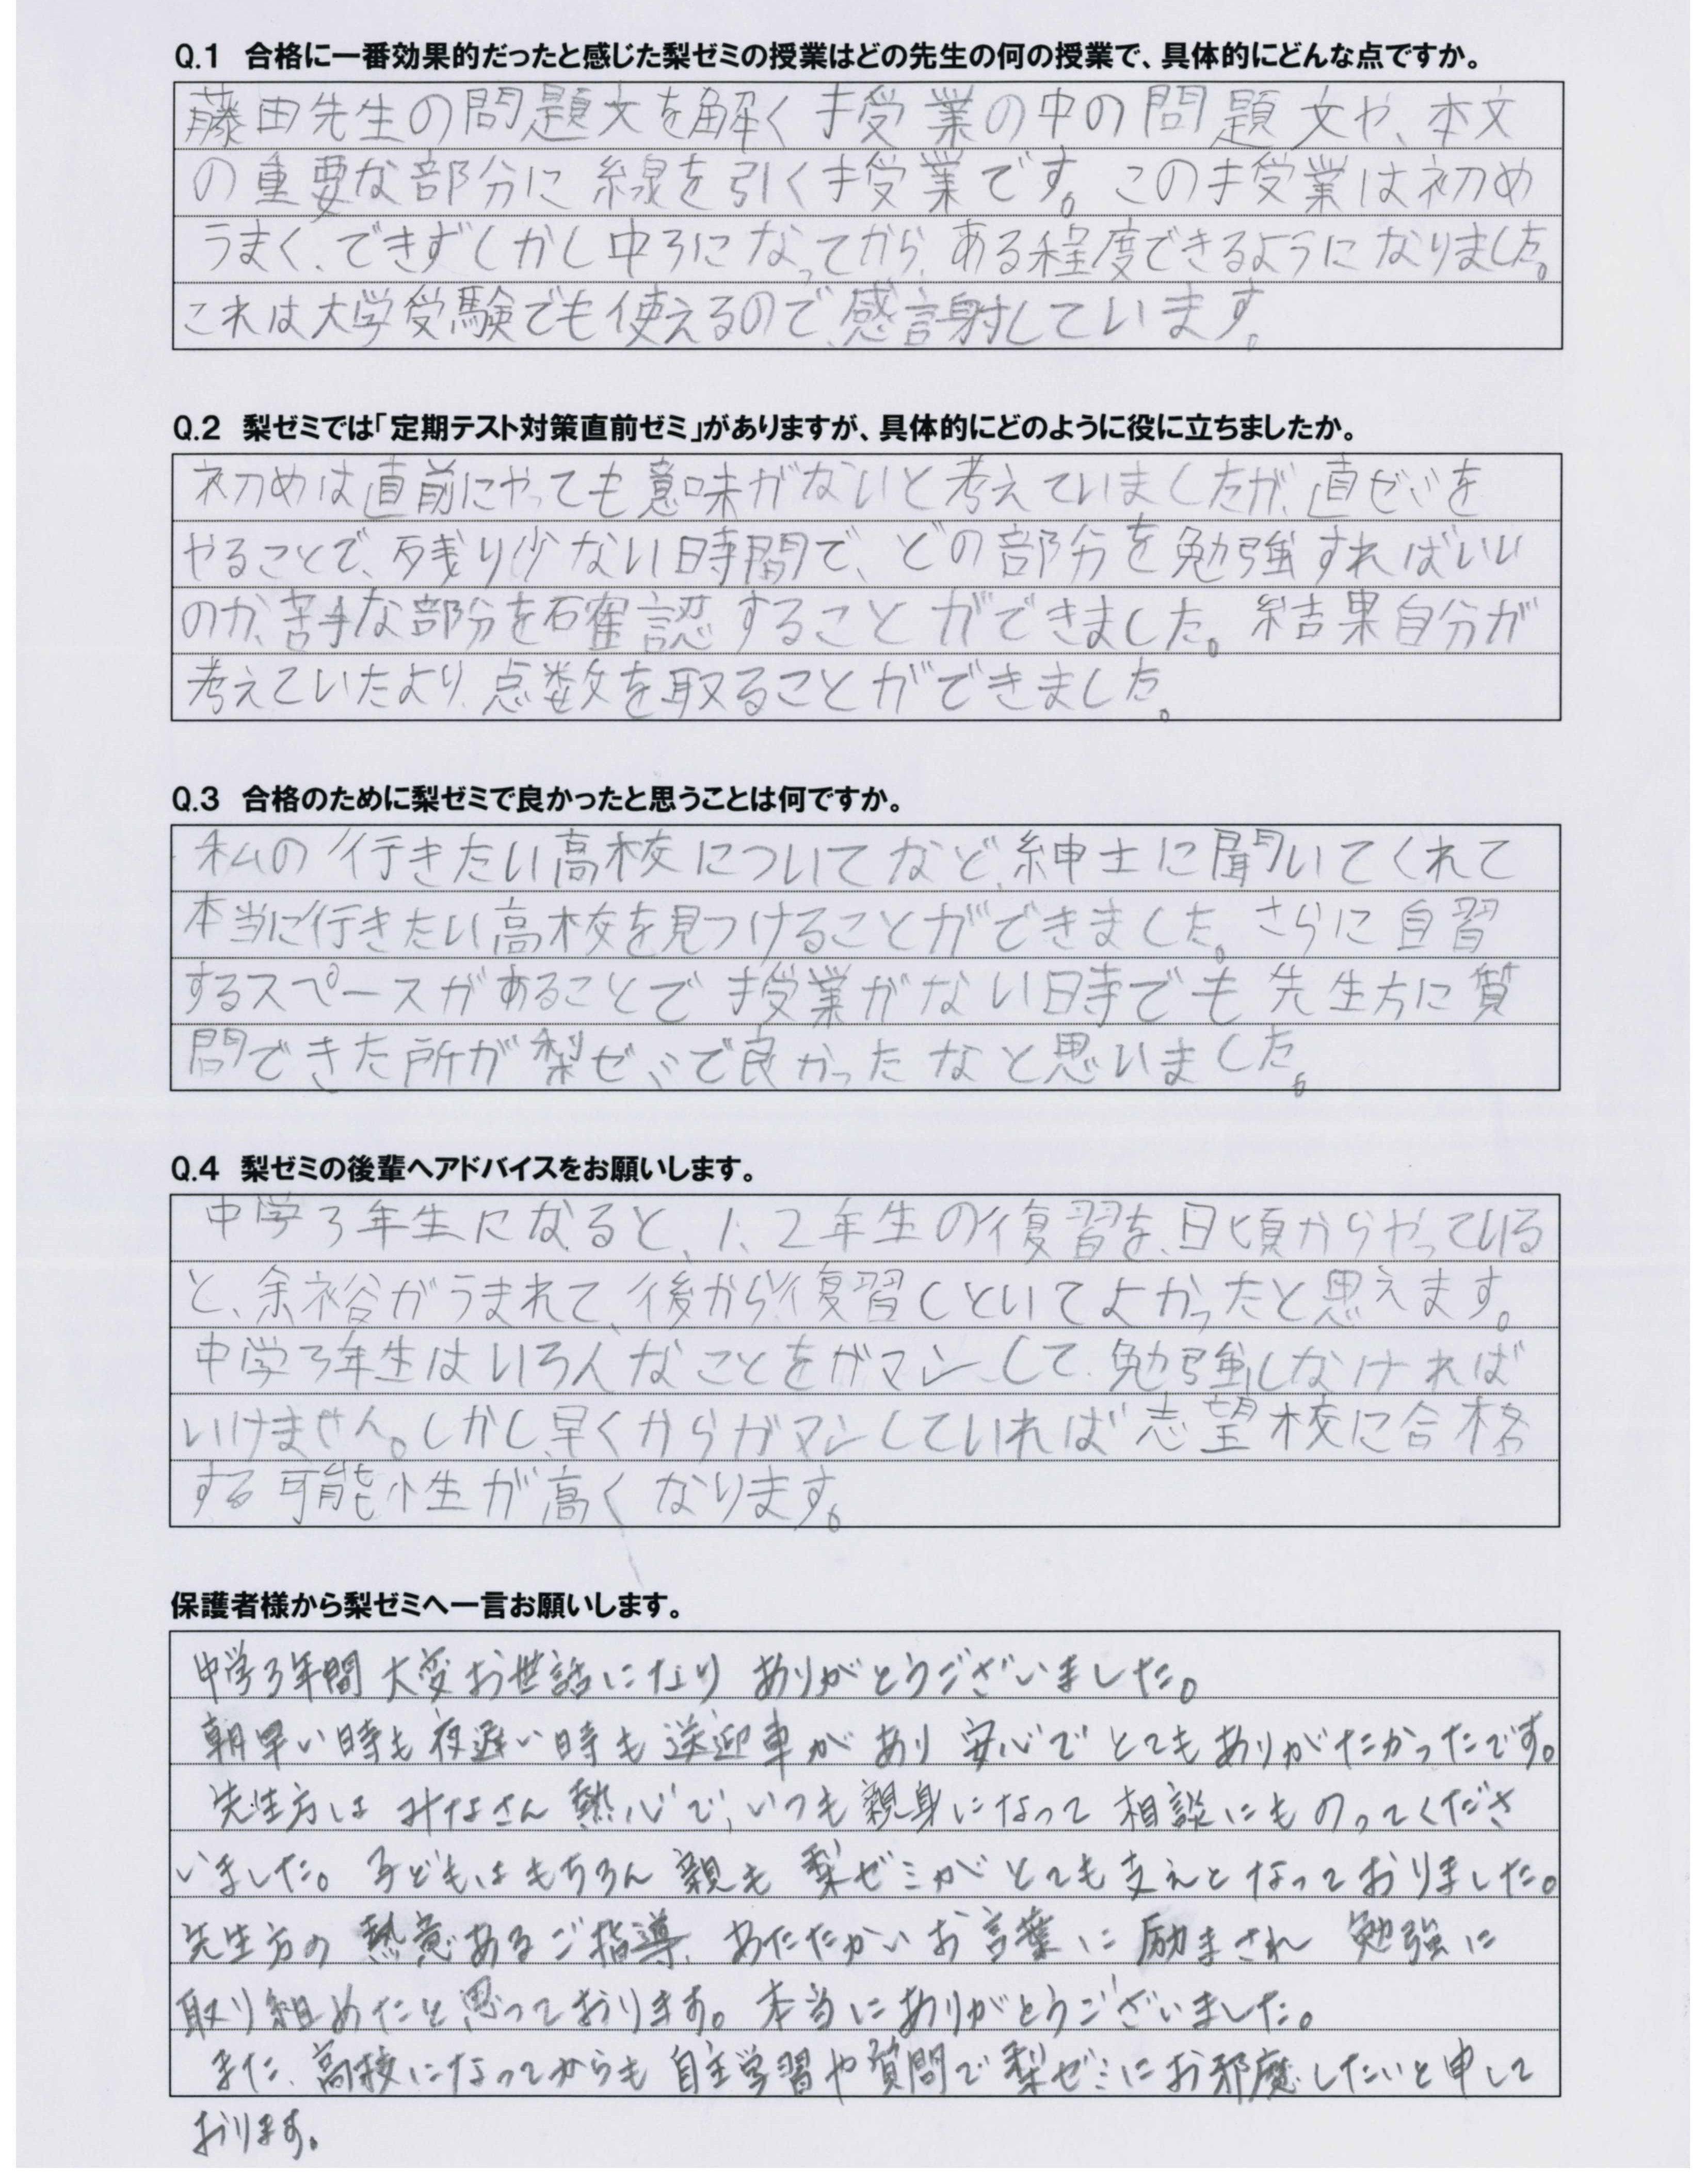 Q.1 合格に一番効果的だったと感じた梨ゼミの授業はどの先生の何の授業で、具体的にどんな点ですか。
藤田先生の問題文を解く授業の中の問題文や、本文
の重要な部分に線を引く授業です。この授業は初め
うまく、できずしかし中3になってから、ある程度できるようになりました。
これは大学受験でも使えるので、感謝しています。
Q.2 梨ゼミでは「定期テスト対策直前ゼミ」がありますが、具体的にどのように役に立ちましたか。
初めは直前にやっても意味がないと考えていましたが、直ゼミを
やることで、残り少ない時間で、どの部分を勉強すればいい
のか、苦手な部分を確認することができました。結果自分が
考えていたより、点数を取ることができました。
Q.3 合格のために梨ゼミで良かったと思うことは何ですか。
私の行きたい高校についてなど、紳士に聞いてくれて
本当に行きたい高校を見つけることができました。さらに自習
するスペースがあることで授業がない時でも先生方に質
問できた所が梨ゼミで良かったなと思いました。
Q.4 梨ゼミの後輩へアドバイスをお願いします。
中学3年生になると、1、2年生の復習を、日頃からやっている
と、余裕がうまれて、後から復習しといてよかったと思えます。
中学3年生はいろんなことをガマンして、勉強しなければ
いけません。しかし、早くからガマンしていれば志望校に合格
する可能性が高くなります。
保護者様から梨ゼミへ一言お願いします。
中学3年間 大変お世話になり ありがとうございました。
朝早い時も夜遅い時も送迎車があり 安心で とてもありがたかったです。
先生方は みなさん 熱心で、いつも親身になって 相談にも のってくださ
いました。子どもはもちろん 親も 梨ゼミが とても支えとなっておりました。
先生方の 熱意あるご指導、あたたかいお言葉に励まされ 勉強に
取り組めたと思っております。本当にありがとうございました。
また、高校になってからも 自主学習や質問で梨ゼミにお邪魔したいと申して
おります。